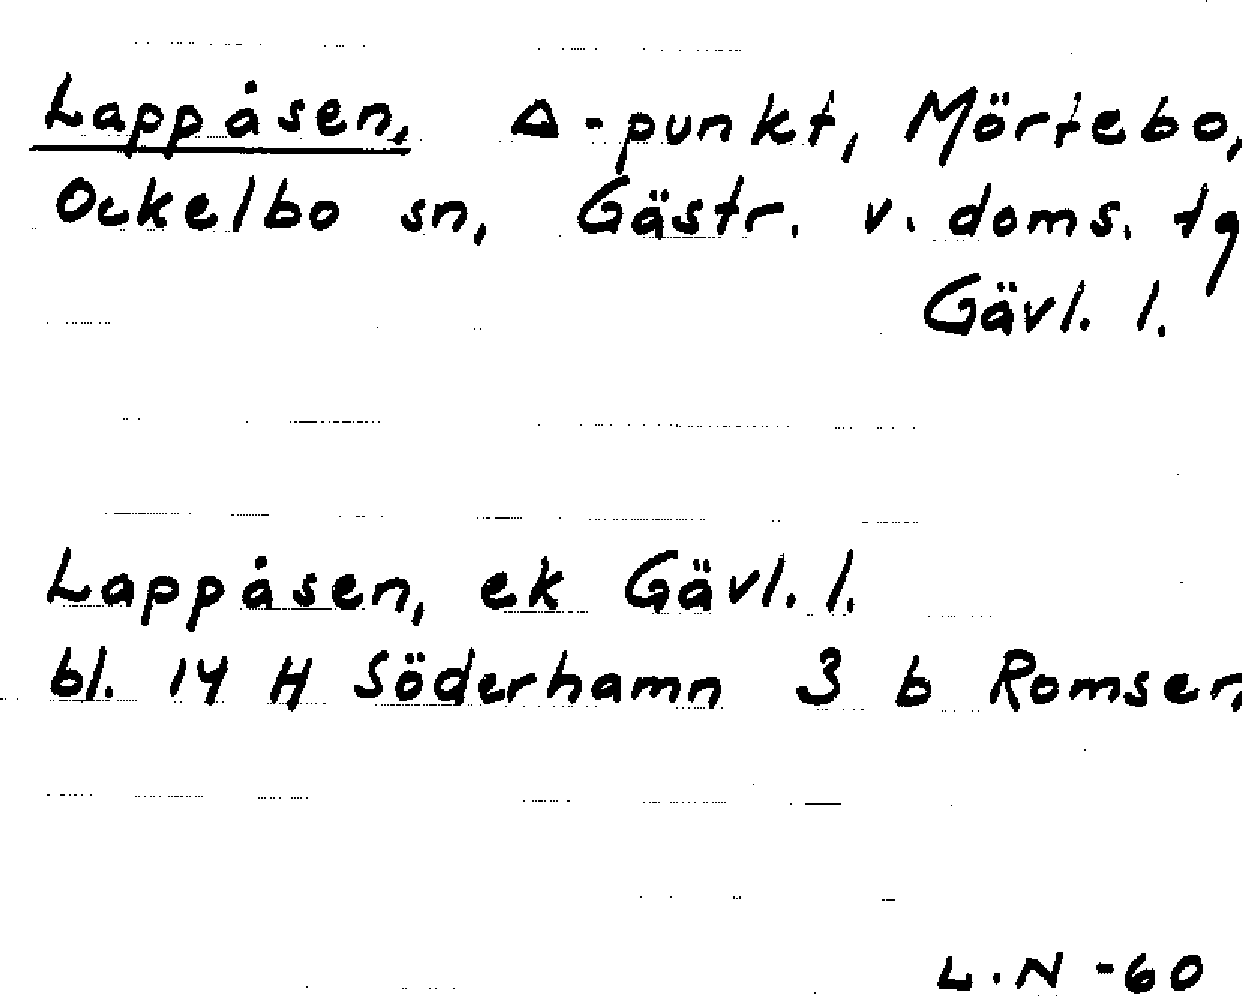 Lappåsen, Δ-punkt, Mörtebo,
Ockelbo sn, Gästr. v. doms. tg
Gävl. l.
Lappåsen, ek Gävl. l.
bl. 14 H Söderhamn 3 b Romsen
L.N -60